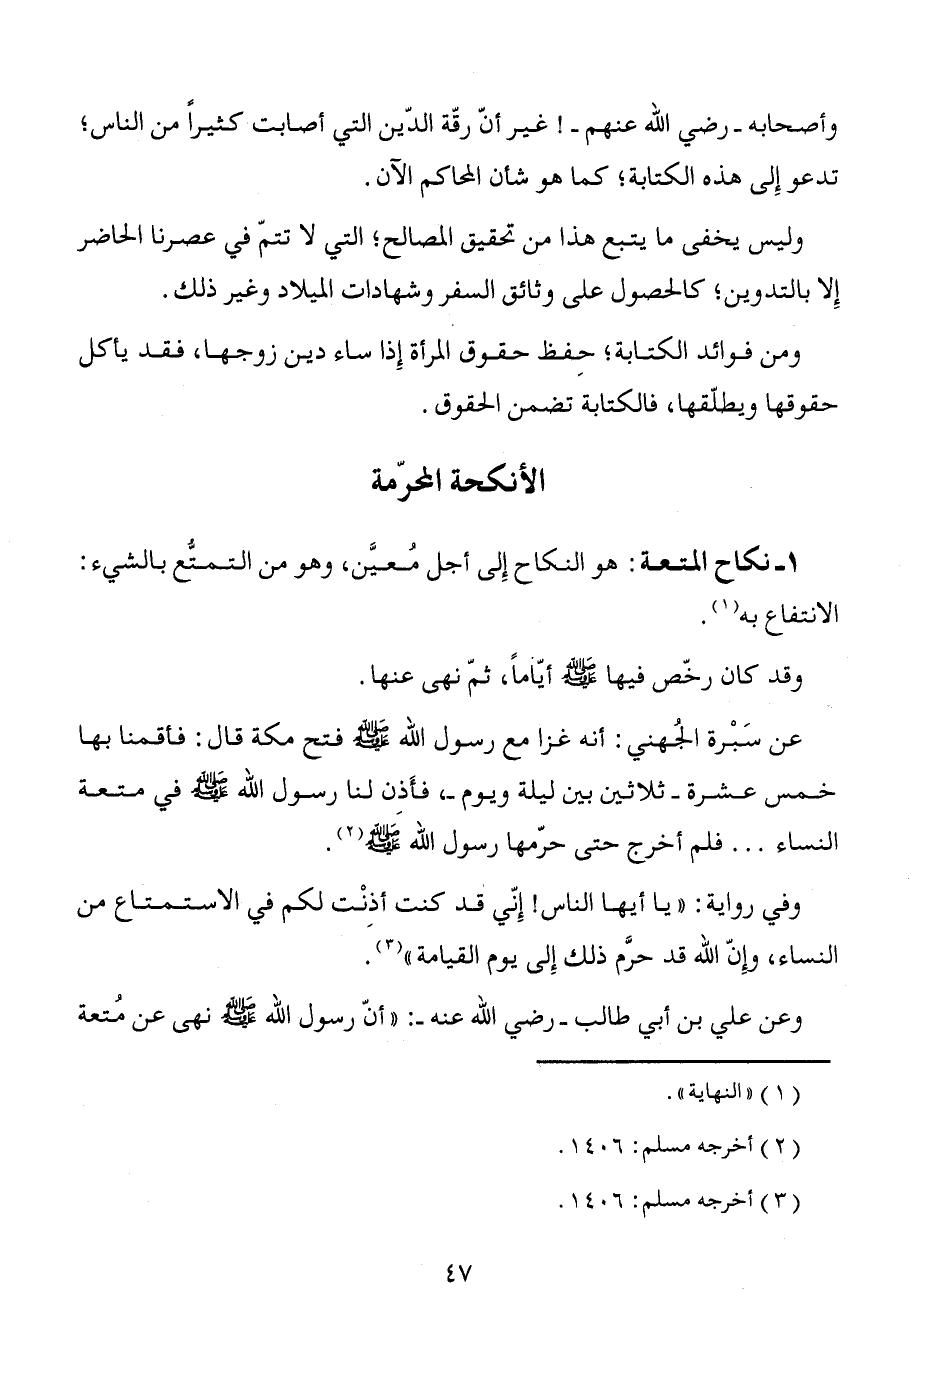 وأصحابه ـ رضي الله عنهم ـ ! غير أنّ رقّة الدّين التي أصابت كثيراً من الناس؛
تدعو إِلى هذه الكتابة؛ كما هو شأن المحاكم الآن.
وليس يخفى ما يتبع هذا من تحقيق المصالح؛ التي لا تتمّ في عصرنا الحاضر
إِلا بالتدوين؛ كالحصول على وثائق السفر وشهادات الميلاد وغير ذلك.
ومن فوائد الكتابة؛ حِفظ حقوق المرأة إِذا ساء دين زوجها، فقد يأكل
حقوقها ويطلّقها، فالكتابة تضمن الحقوق.
الأنكحة المحرّمة
١ـ نكاح المتعة: هو النكاح إِلى أجل مُعيَّن، وهو من التمتُّع بالشيء:
الانتفاع به(١).
وقد كان رخّص فيها ﷺ أيّاماً، ثمّ نهى عنها.
عن سَبْرة الجُهني: أنه غزا مع رسول الله ﷺ فتح مكة قال: فأقمنا بها
خمس عشرة ـ ثلاثين بين ليلة ويوم ـ، فأَذِن لنا رسول الله ﷺ في متعة
النساء ... فلم أخرج حتى حرّمها رسول الله ﷺ(٢).
وفي رواية: «يا أيها الناس! إِنّي قد كنت أذِنْت لكم في الاستمتاع من
النساء، وإِنّ الله قد حرَّم ذلك إِلى يوم القيامة»(٣).
وعن علي بن أبي طالب ـ رضي الله عنه ـ: «أنّ رسول الله ﷺ نهى عن مُتعة
(١) «النهاية».
(٢) أخرجه مسلم: ١٤٠٦.
(٣) أخرجه مسلم: ١٤٠٦.
٤٧